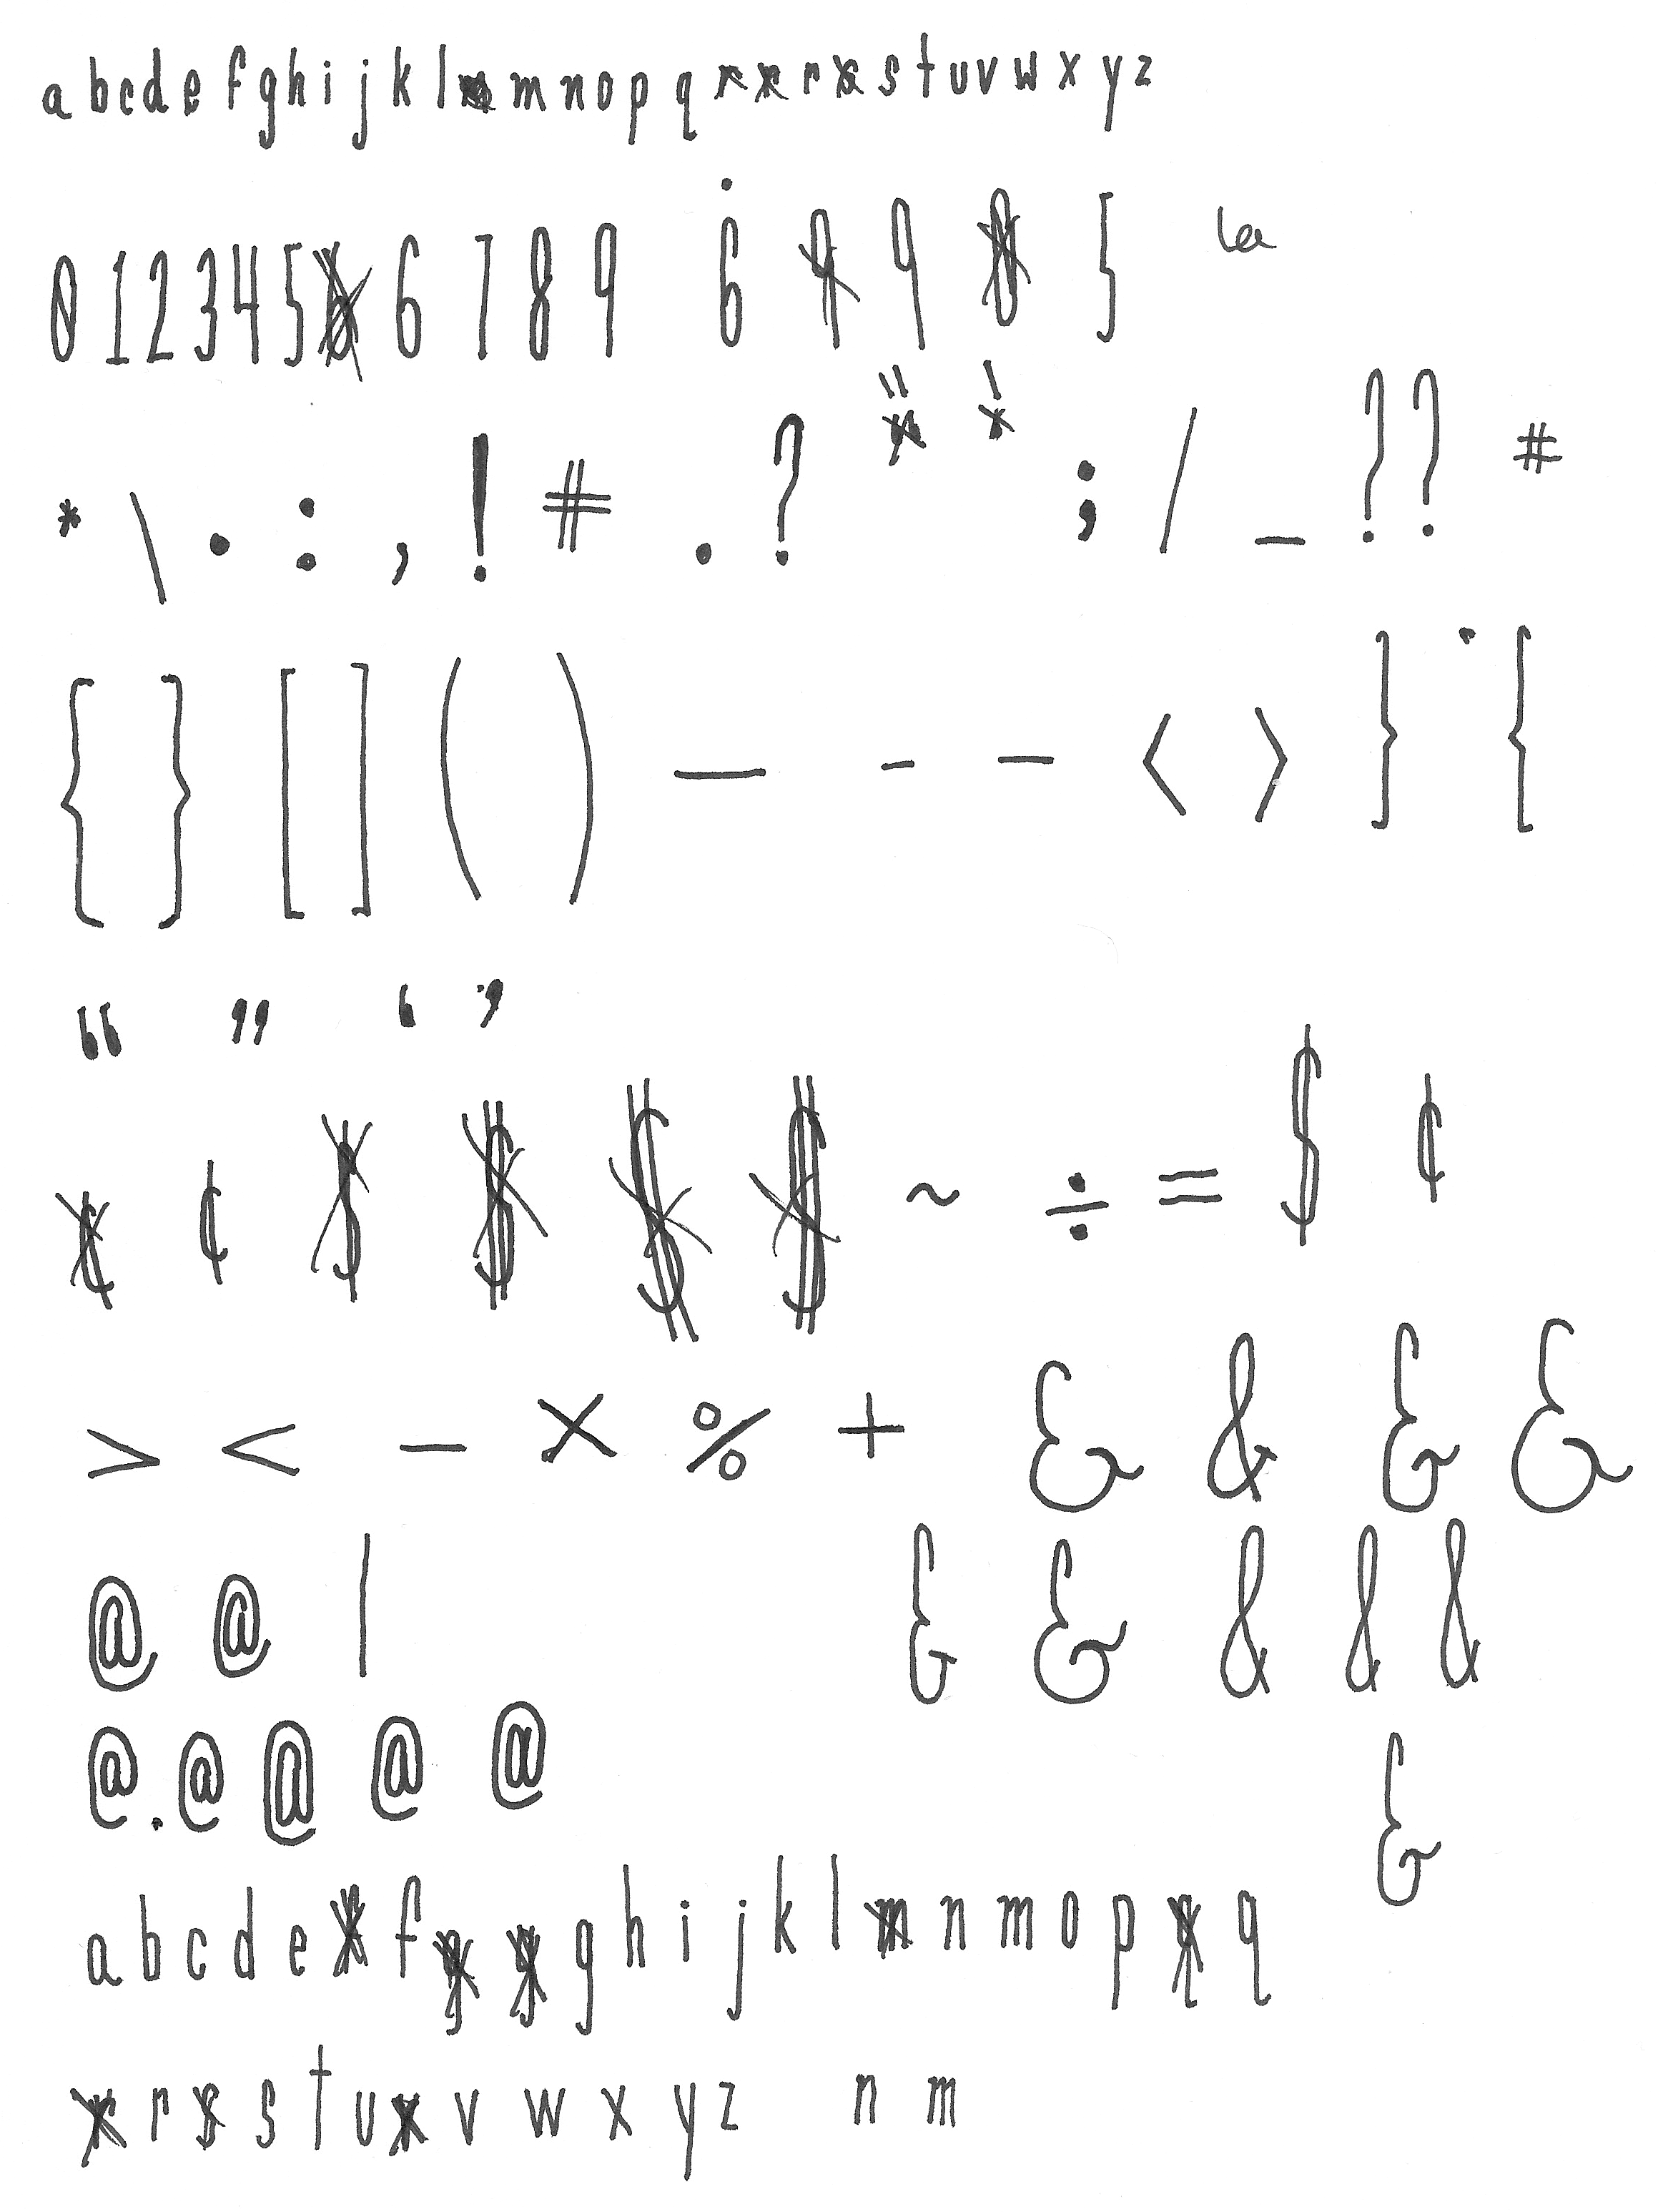 a b c d e f g h i j k l m n o p q r s t u v w x y z
0 1 2 3 4 5 6 7 8 9 6 9 5
" '
* \ • : , ! # . ? ; / _ ? ? #
{ } [ ] ( ) — - – ⟨ ⟩ } {
“ ” ‘ ’
¢ ~ ÷ = $ ¢
> < − × % + & & & &
@ @ | & & & & &
@ . @ @ @ @
&
a b c d e f g h i j k l n m o p q
r s t u v w x y z n m